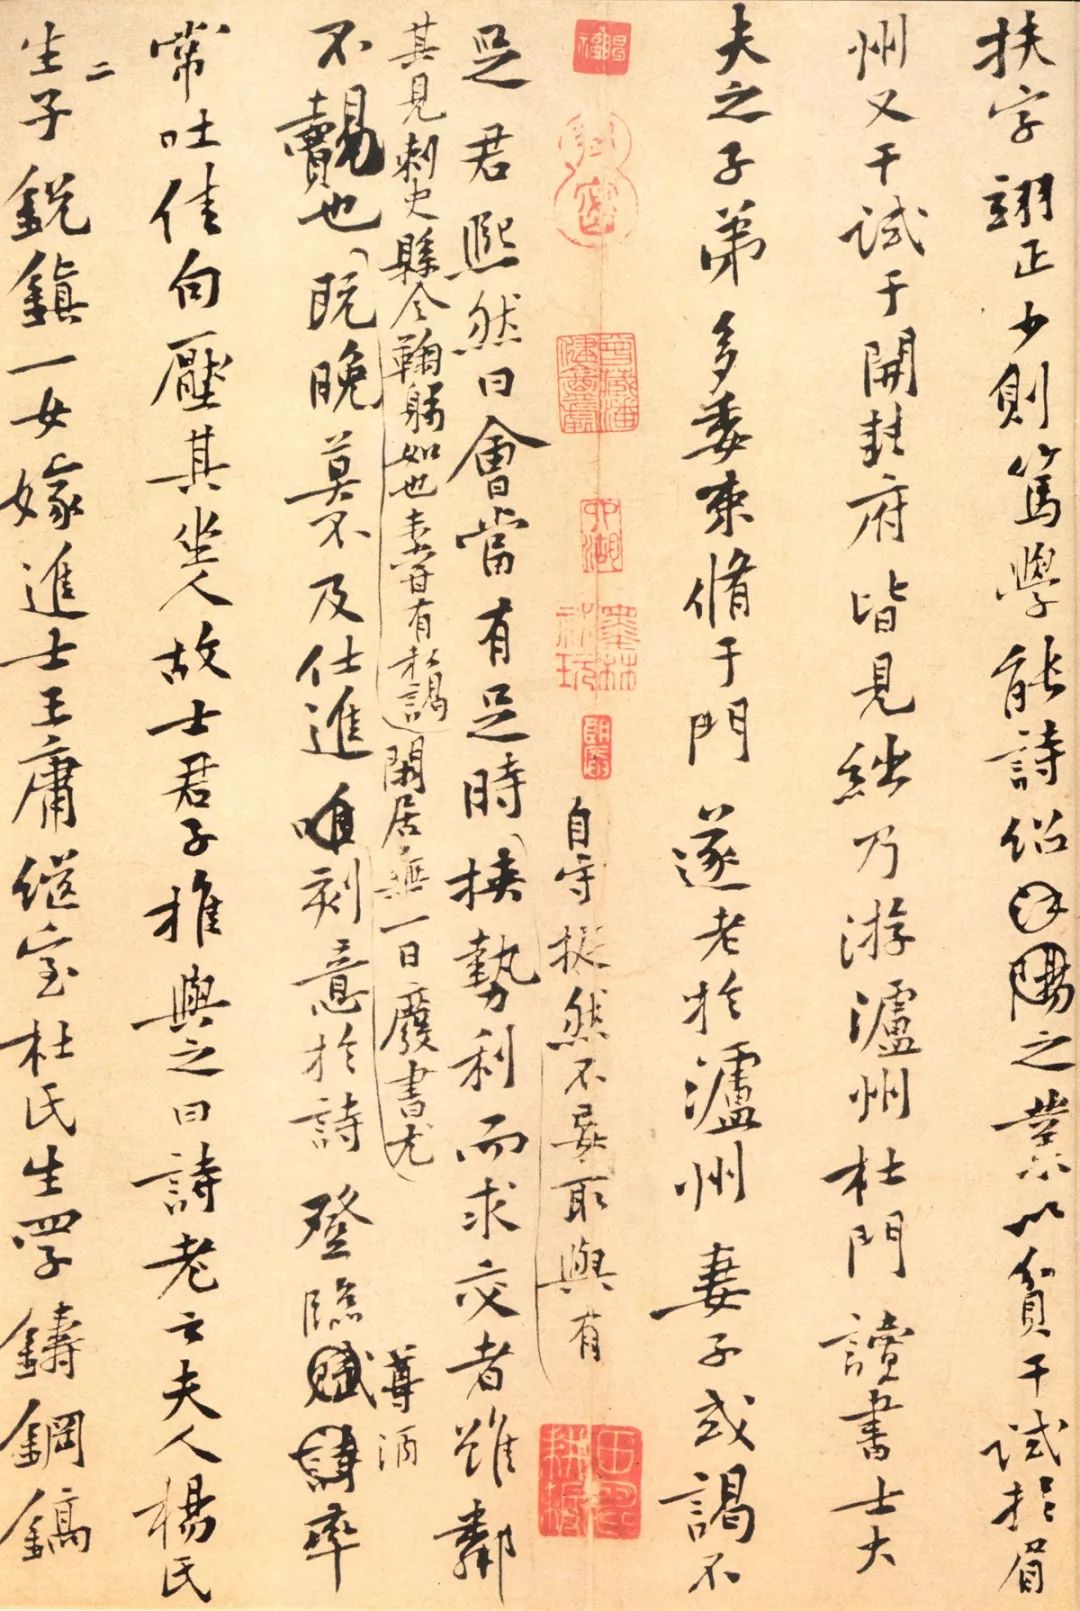 扶字翊正少則篤學能詩紹陽之業以貧干試於眉
州又干試于開封府皆見絀乃游瀘州杜門讀書士大
夫之子弟多委束脩于門遂老於瀘州妻子或謁不
自守挺然不妄取與有
足君熙然曰會當有足時挾勢利而求交者雖鄰
其見刺史縣令鞠躬如也未嘗有私謁閑居無一日廢書尤
不覿也既晚莫不及仕進唯刻意於詩登臨賦率
尊酒
常吐佳句壓其坐人故士君子推與之曰詩老云夫人楊氏
生二子銳鎮一女嫁進士王庸継室杜氏生四子鑄鋼鎬